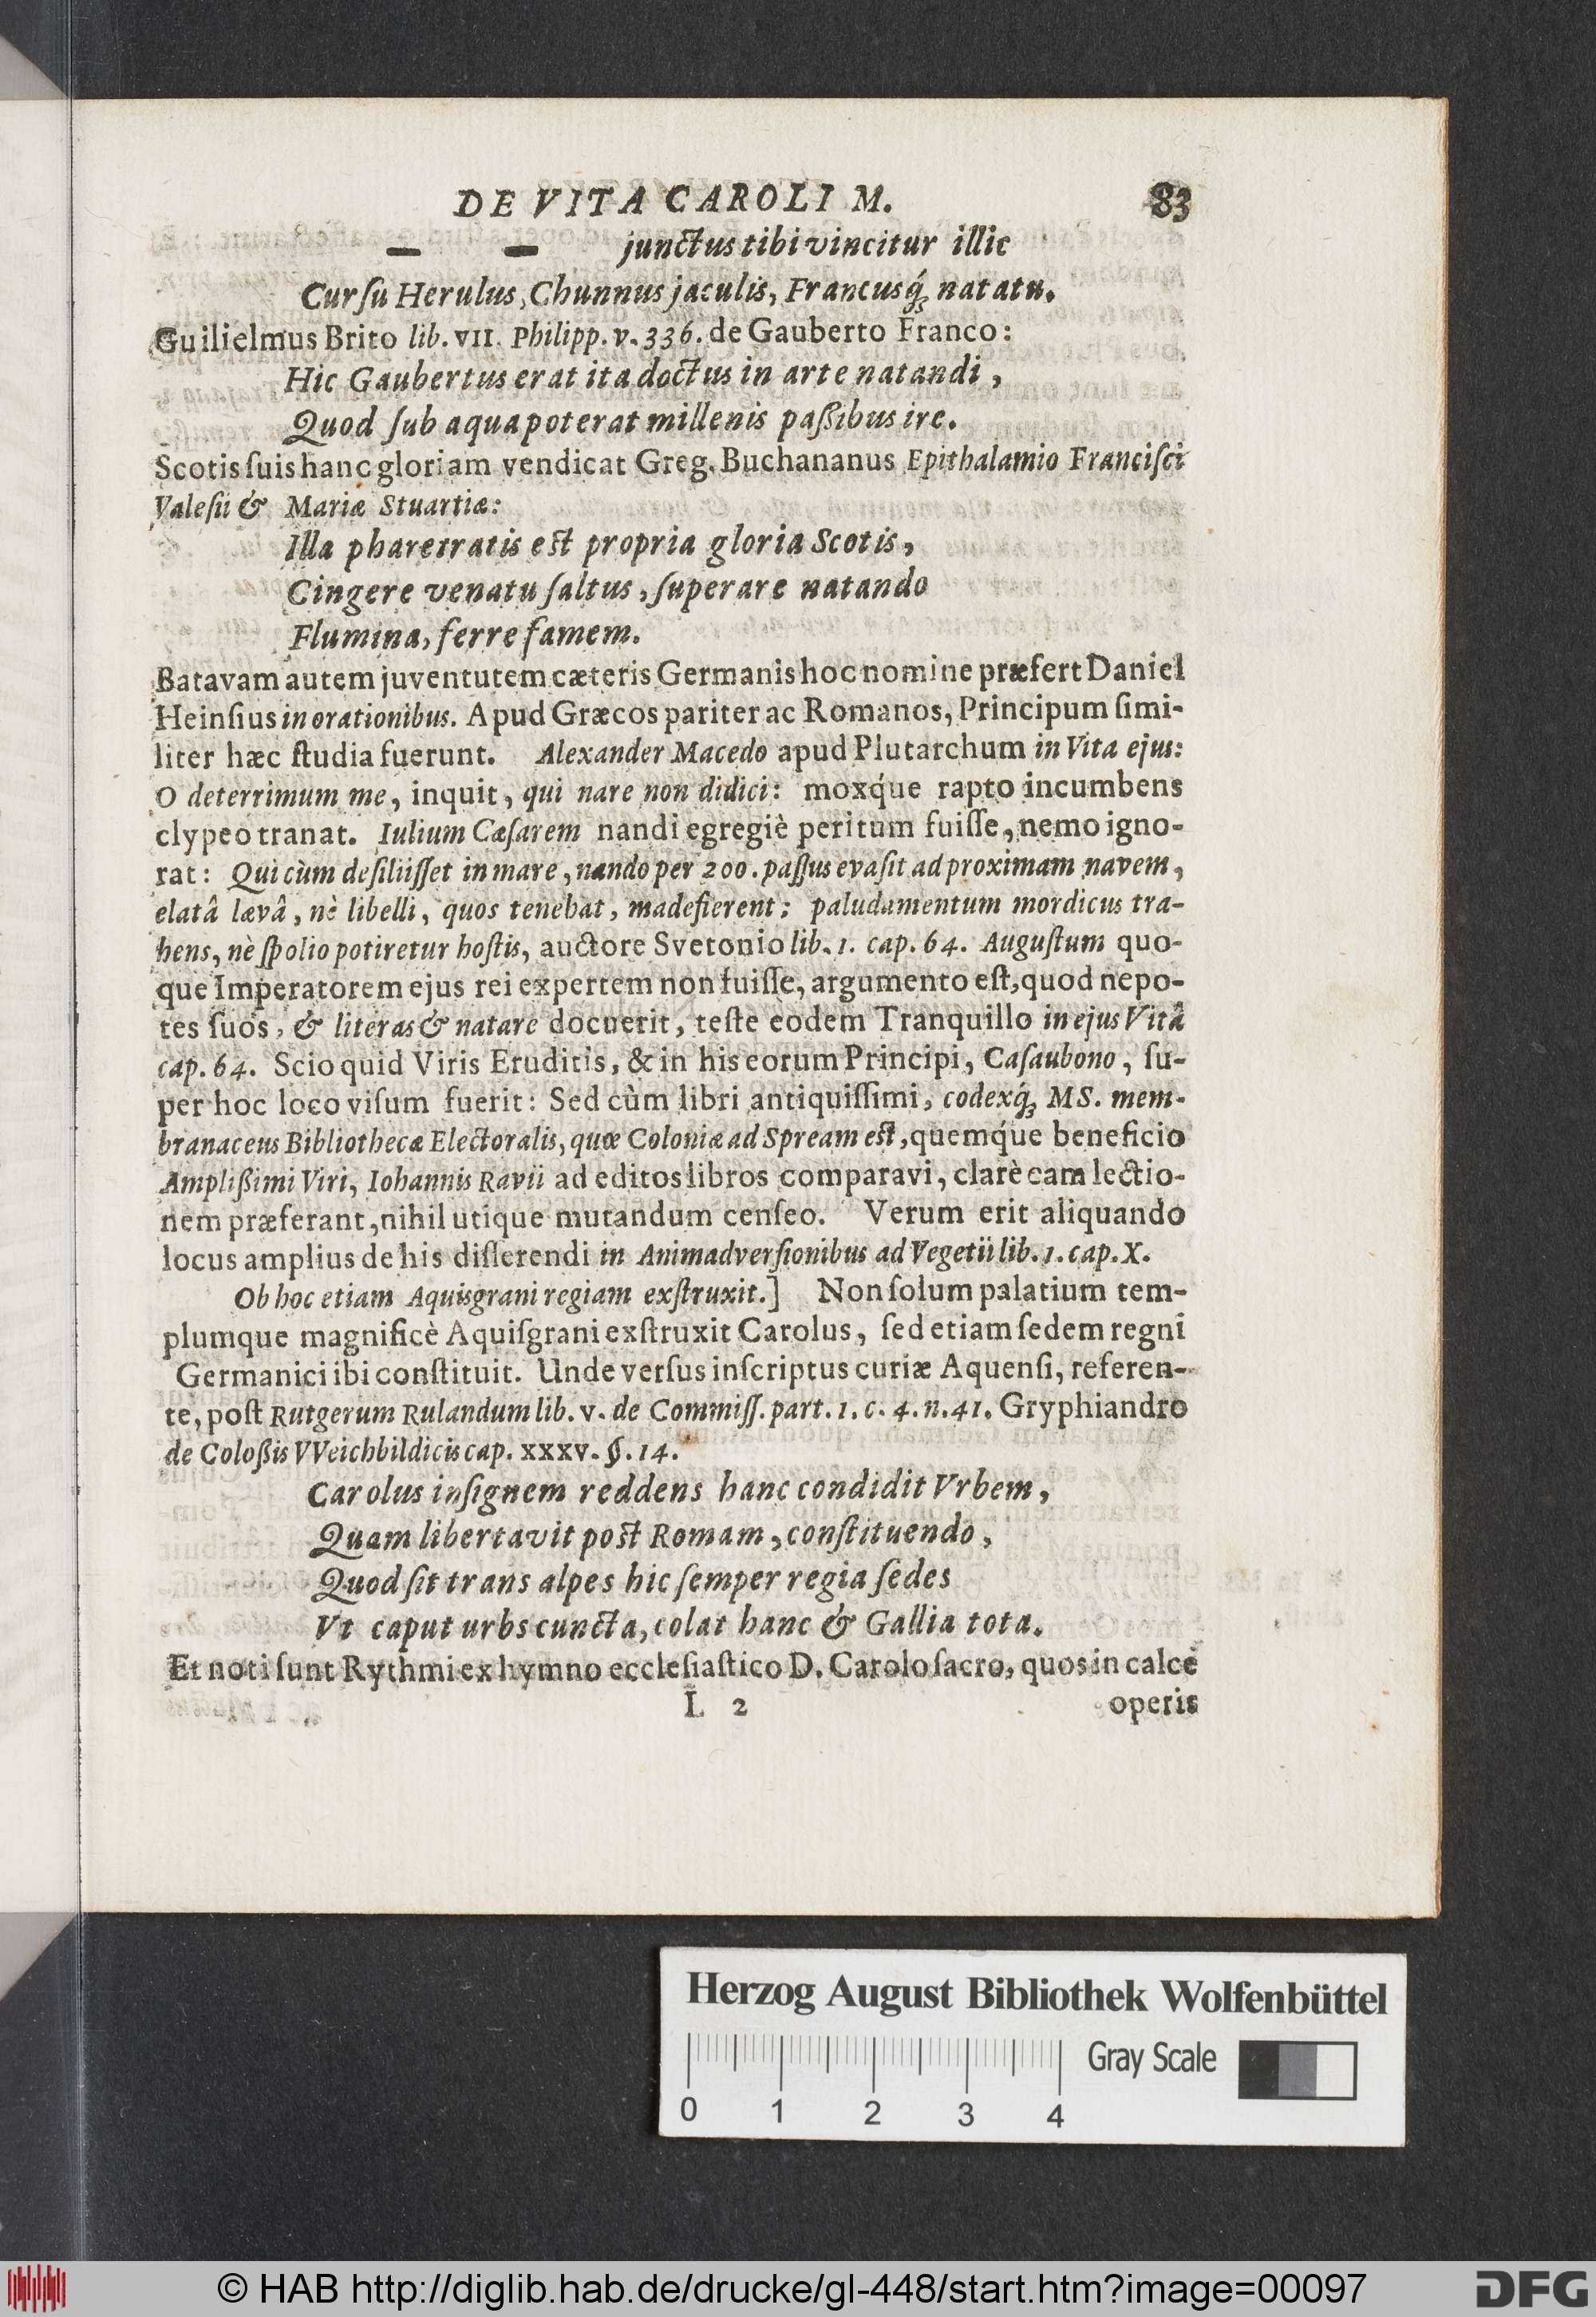 DE VITA CAROLI M. 83
— — junctus tibi vincitur illic
Curſu Herulus, Chunnus jaculis, Francusq́; natatu.
Guilielmus Brito lib. VII. Philipp. v. 336. de Gauberto Franco:
Hic Gaubertus erat ita doctus in arte natandi,
Quod ſub aqua poterat millenis paßibus ire.
Scotis ſuis hanc gloriam vendicat Greg. Buchananus Epithalamio Franciſci
Valeſii & Mariæ Stuartiæ:
Illa pharetratis est propria gloria Scotis,
Cingere venatu ſaltus, ſuperare natando
Flumina, ferre famem.
Batavam autem juventutem cæteris Germanis hoc nomine præfert Daniel
Heinſius in orationibus. Apud Græcos pariter ac Romanos, Principum ſimi-
liter hæc ſtudia fuerunt. Alexander Macedo apud Plutarchum in Vita ejus:
O deterrimum me, inquit, qui nare non didici: moxq́ue rapto incumbens
clypeo tranat. Iulium Cæſarem nandi egregiè peritum fuiſſe, nemo igno-
rat: Qui cùm deſiliiſſet in mare, nando per 200. paſſus evaſit ad proximam navem,
elatâ lævâ, nè libelli, quos tenebat, madefierent; paludamentum mordicus tra-
hens, nè ſpolio potiretur hoſtis, auctore Svetonio lib. 1. cap. 64. Auguſtum quo-
que Imperatorem ejus rei expertem non fuiſſe, argumento eſt, quod nepo-
tes ſuos, & literas & natare docuerit, teſte eodem Tranquillo in ejus Vitâ
cap. 64. Scio quid Viris Eruditis, & in his eorum Principi, Caſaubono, ſu-
per hoc loco viſum fuerit: Sed cùm libri antiquiſſimi, codexq́; MS. mem-
branaceus Bibliothecæ Electoralis, quæ Coloniæ ad Spream est, quemq́ue beneficio
Amplißimi Viri, Iohannis Ravii ad editos libros comparavi, clarè eam lectio-
nem præferant, nihil utique mutandum cenſeo. Verum erit aliquando
locus amplius de his diſſerendi in Animadverſionibus ad Vegetii lib. 1. cap. X.
Ob hoc etiam Aquisgrani regiam exſtruxit.] Non ſolum palatium tem-
plumque magnificè Aquiſgrani exſtruxit Carolus, ſed etiam ſedem regni
Germanici ibi conſtituit. Unde verſus inſcriptus curiæ Aquenſi, referen-
te, poſt Rutgerum Rulandum lib. v. de Commiſſ. part. 1. c. 4. n. 41. Gryphiandro
de Coloßis VVeichbildicis cap. XXXV. §. 14.
Carolus inſignem reddens hanc condidit Vrbem,
Quam libertavit post Romam, conſtituendo,
Quod ſit trans alpes hic ſemper regia ſedes
Vt caput urbs cuncta, colat hanc & Gallia tota.
Et noti ſunt Rythmi ex hymno eccleſiaſtico D. Carolo ſacro, quos in calce
L 2 operis
Herzog August Bibliothek Wolfenbüttel
Gray Scale
0 1 2 3 4
© HAB http://diglib.hab.de/drucke/gl-448/start.htm?image=00097
DFG